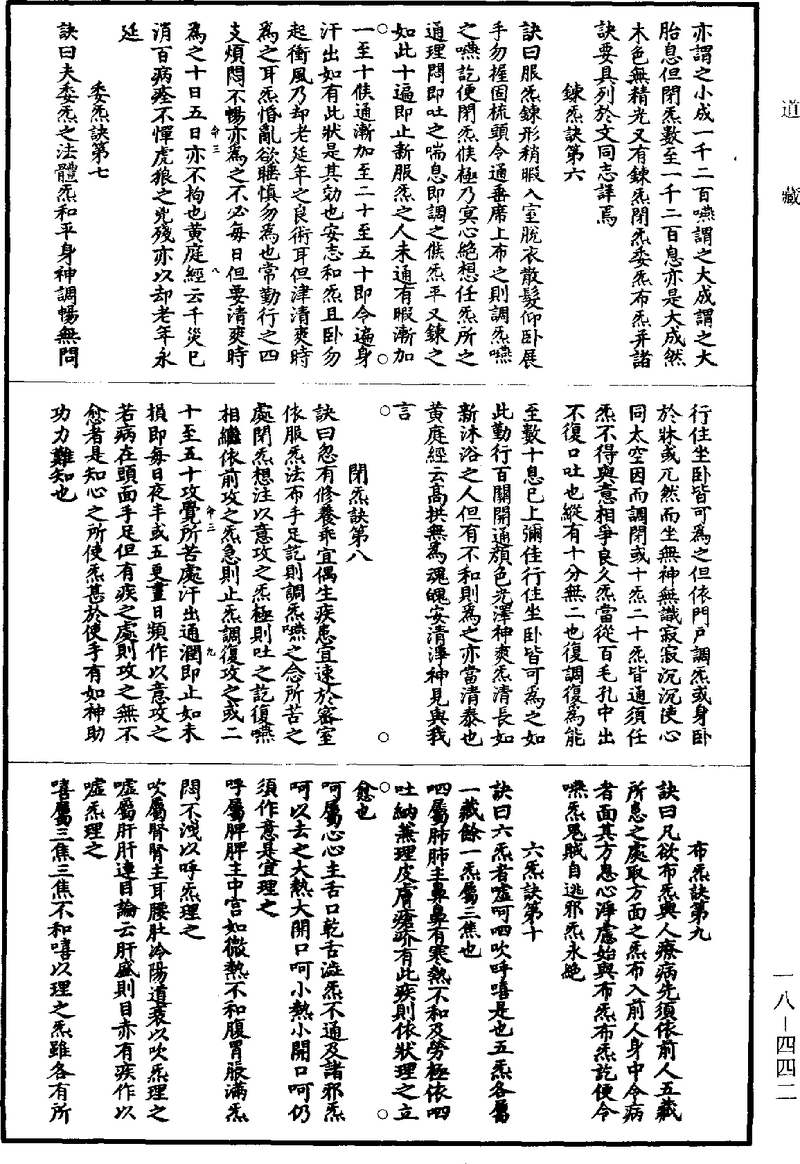 道藏
亦謂之小成一千二百嚥謂之大成謂之大
胎息但閉炁數至一千二百息亦是大成然
木色無精光又有鍊炁閉炁委炁布炁并諸
訣要具列於文同志詳焉
鍊炁訣第六
訣曰服炁鍊形稍暇入室脫衣散髮仰卧展
手勿握固梳頭令通垂席上布之則調炁嚥
之嚥訖便閉炁候極乃冥心絕想任炁所之
通理悶即吐之喘息即調之候炁平又鍊之
如此十遍即止新服炁之人未通有暇漸加
一至十候通漸加至二十至五十即令遍身
汗出如有此狀是其効也安志和炁且卧勿
起衝風乃却老延年之良術耳但津清爽時
為之耳炁惛亂欲睡慎勿為也常勤行之四
支煩悶不暢亦為之不必每日但要清爽時
為之十日五日亦不拘也黃庭經云千災已
命三
八
消百病痊不憚虎狼之兇殘亦以却老年永
延
委炁訣第七
訣曰夫委炁之法體炁和平身神調暢無問
行住坐卧皆可為之但依門戶調炁或身卧
於牀或兀然而坐無神無識寂寂沉沉使心
同太空因而調閉或十炁二十炁皆通須任
炁不得與意相爭良久炁當從百毛孔中出
不復口吐也縱有十分無二也復調復為能
至數十息已上彌佳行住坐卧皆可為之如
此勤行百關開通顏色光澤神爽炁清長如
新沐浴之人但有不和則為之亦當清泰也
黃庭經云高拱無為魂魄安清淨神見與我
言
閉炁訣第八
訣曰忽有修養乖宜偶生疾患宜速於密室
依服炁法布手足訖則調炁嚥之念所苦之
處閉炁想注以意攻之炁極則吐之訖復嚥
相繼依前攻之炁急則止炁調復攻之或二
十至五十攻覺所苦處汗出通潤即止如未
命三
九
損即每日夜半或五更晝日頻作以意攻之
若病在頭面手足但有疾之處則攻之無不
愈者是知心之所使炁甚於使手有如神助
功力難知也
布炁訣第九
訣曰凡欲布炁與人療病先須依前人五藏
所患之處取方面之炁布入前人身中令病
者面其方息心淨慮始與布炁布炁訖便令
嚥炁鬼賊自逃邪炁永絕
六炁訣第十
訣曰六炁者噓呵呬吹呼嘻是也五炁各屬
一藏餘一炁屬三焦也
呬屬肺肺主鼻鼻有寒熱不和及勞極依呬
吐納兼理皮膚瘡疥有此疾則依狀理之立
愈也
呵屬心心主舌口乾舌澁炁不通及諸邪炁
呵以去之大熱大開口呵小熱小開口呵仍
須作意是宜理之
呼屬脾脾主中宮如微熱不和腹胃脹滿炁
悶不洩以呼炁理之
吹屬腎腎主耳腰肚冷陽道衰以吹炁理之
噓屬肝肝連目論云肝盛則目赤有疾作以
噓炁理之
嘻屬三焦三焦不和嘻以理之炁雖各有所
一八－四四二